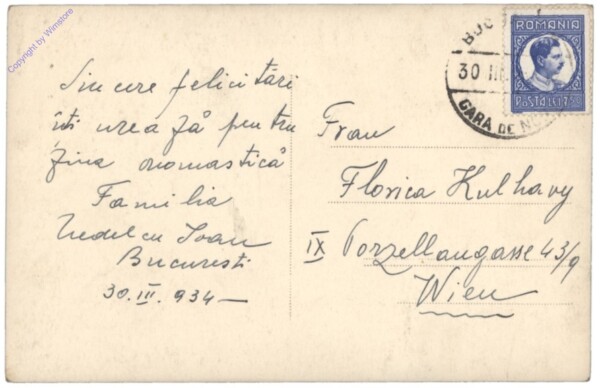 Copyright by Wienstore
Sincere felicitări
îți urează pentru
ziua onomastică
Familia
Nedelcu Ioan
Bucuresti
30.III.934
ROMANIA
POSTA LEI 7
30 III
GARA DE N
Frau
Florica Kulhavy
IX Porzellangasse 43/9
Wien